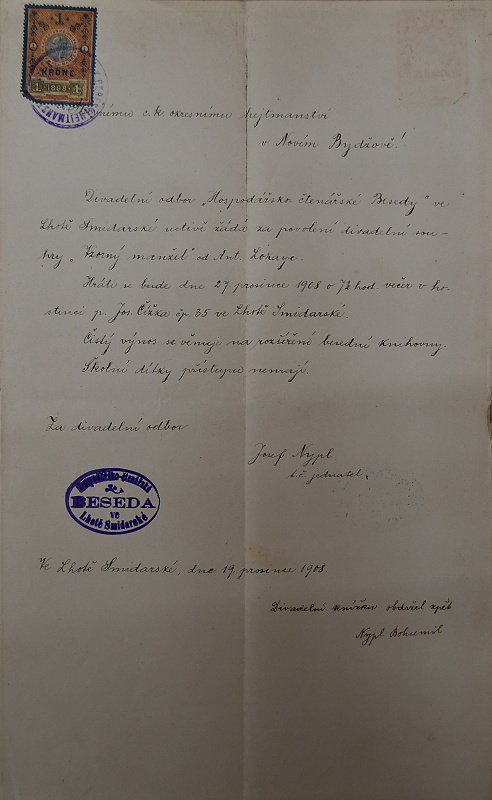 1
KRONE
1 1898 1
HEJTMAN
c. k. okresnímu hejtmanství
v Novém Bydžově!
Divadelní odbor „Hospodářsko čtenářské Besedy" ve
Lhotě Smidarské uctivě žádá za povolení divadelní sou-
hry „Vzorný manžel" od Ant. Lokaye.
Hráti se bude dne 27 prosince 1908 o 7½ hod. večer v ho-
stinci p. Jos. Čížka čp. 35 ve Lhotě Smidarské.
Čistý výnos se věnuje na rozšíření besední knihovny.
Školní dítky přístupu nemají.
Za divadelní odbor
Josef Nypl
t. č. jednatel.
Hospodářsko-čtenářská
BESEDA
ve
Lhotě Smidarské
Ve Lhotě Smidarské, dne 19. prosince 1908.
Divadelní knížku obdržel zpět
Nypl Bohumil